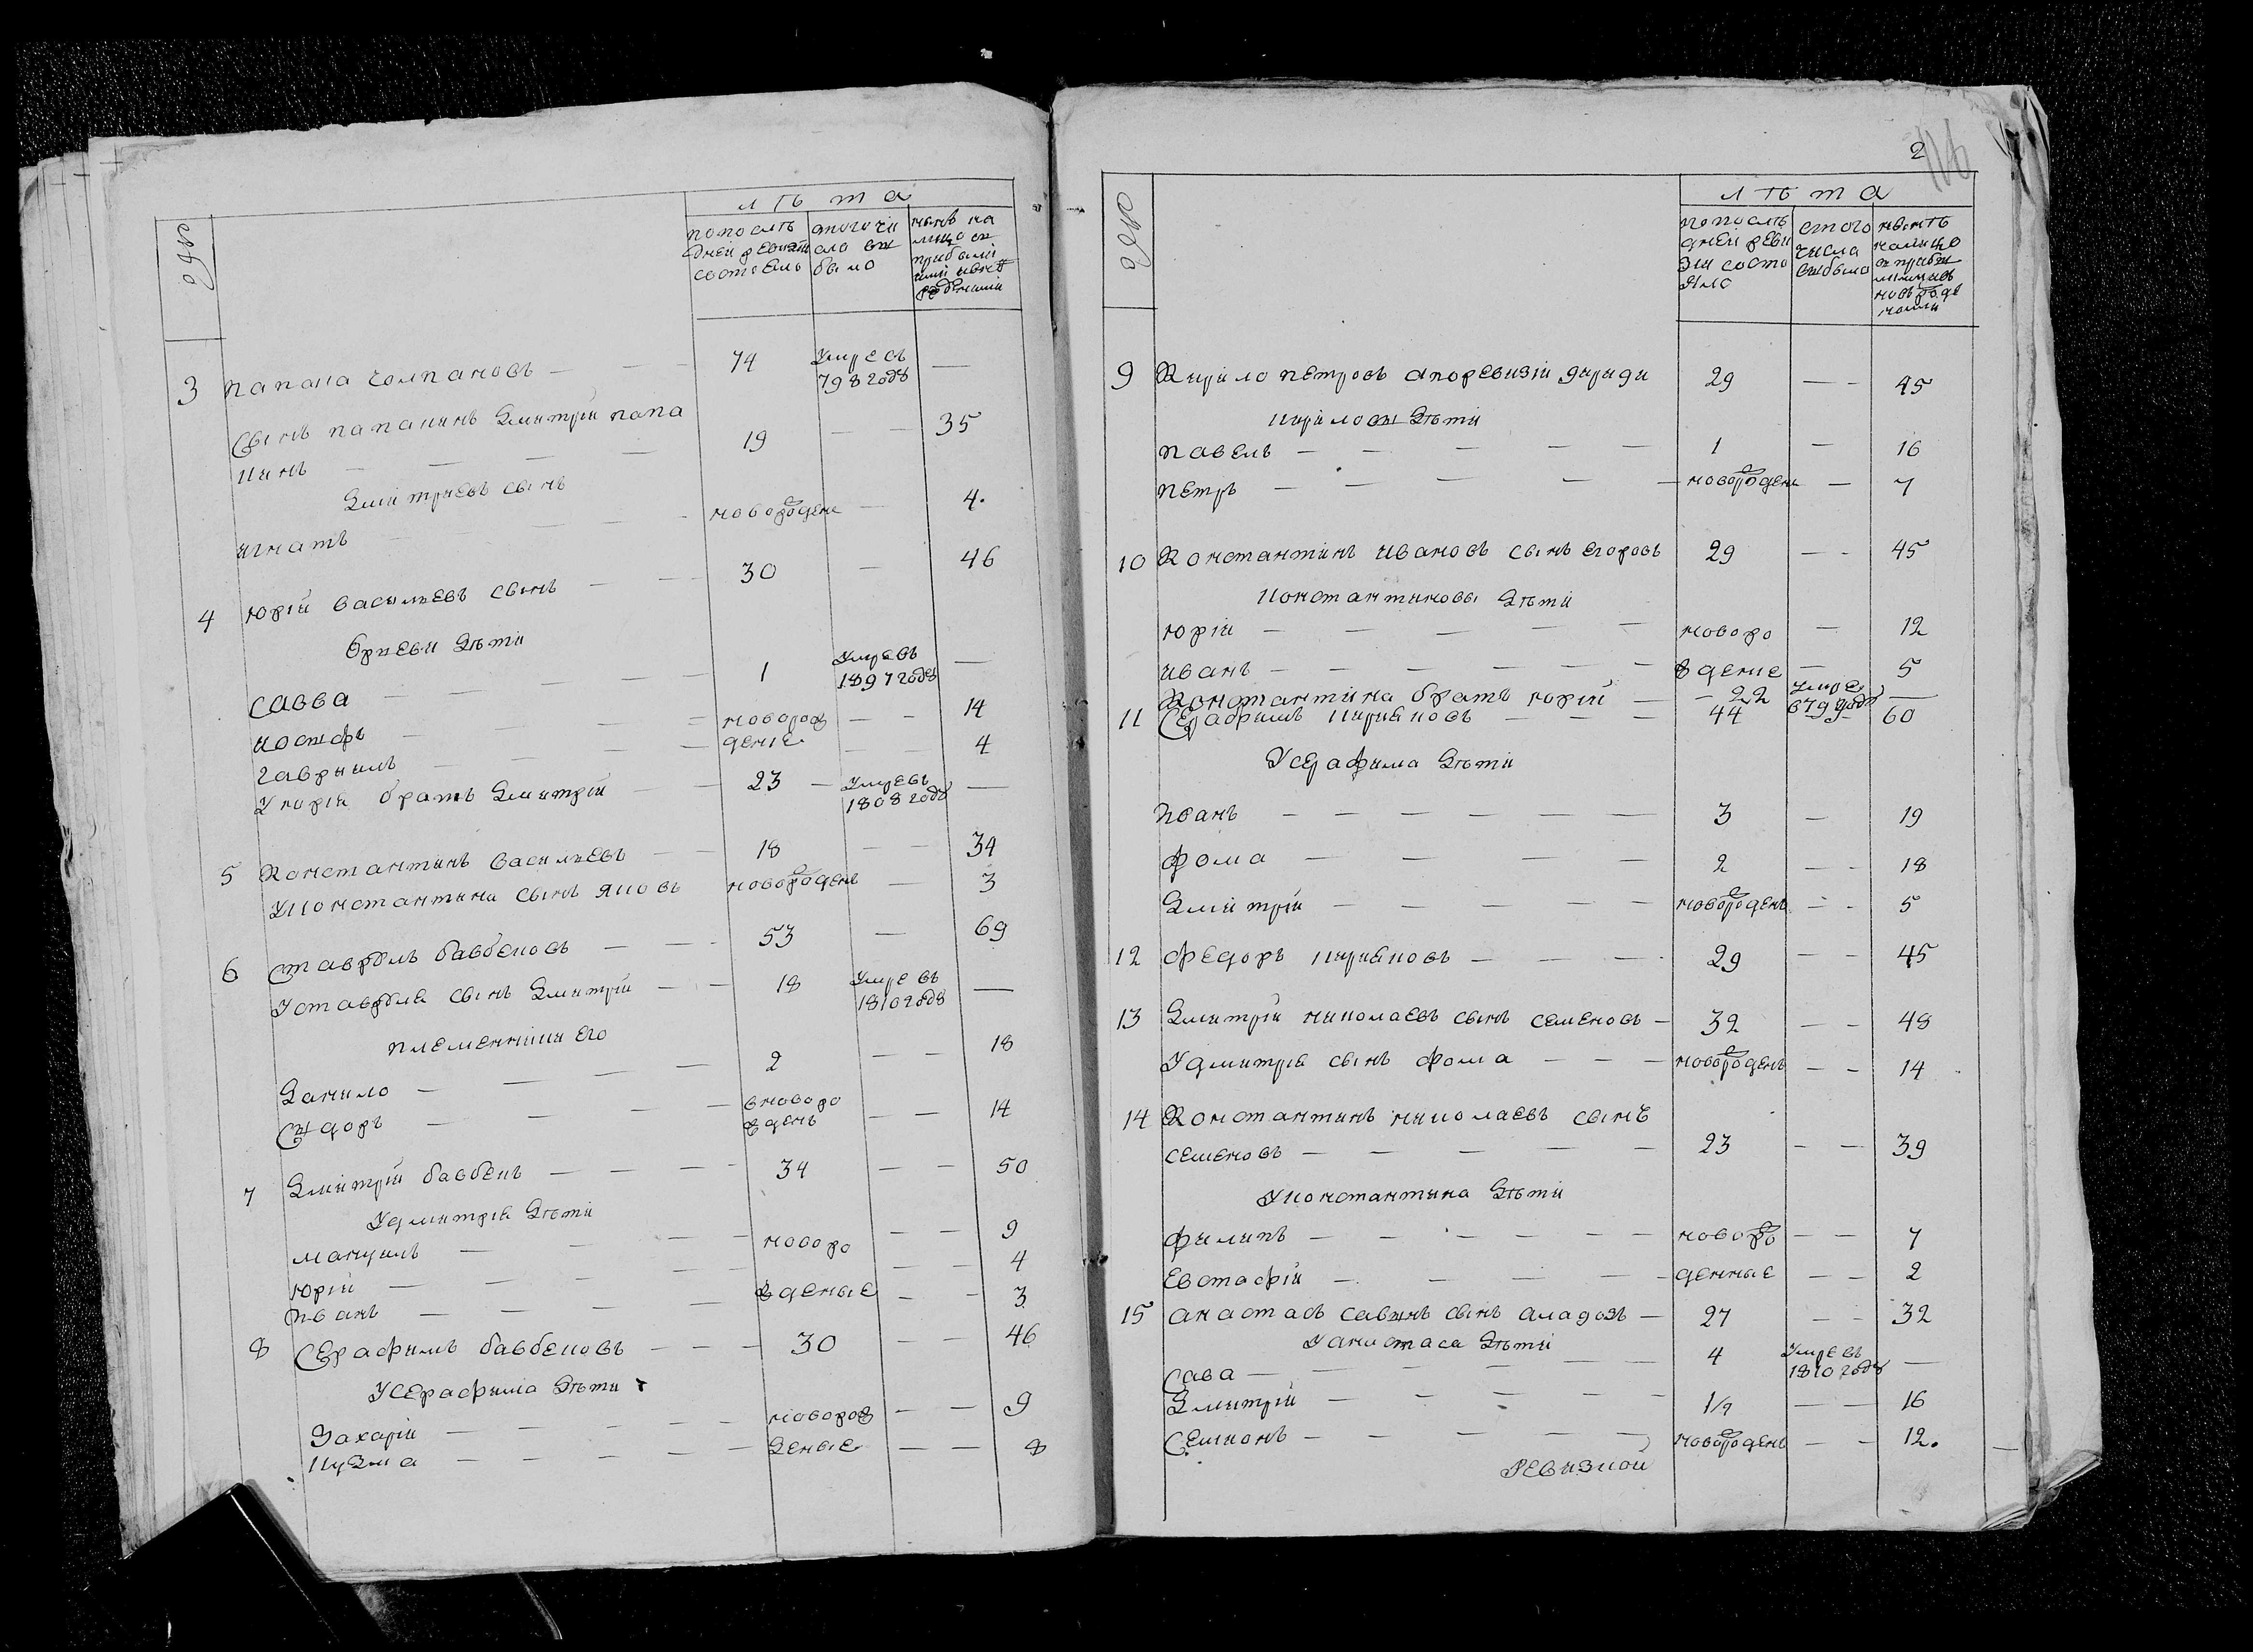 лѣта
попослѣ
дней ревизiи
состояль
ыбыло
нынѣ на
лицо
3 папаша чолпановъ — — 74 Умре въ 798 годѣ —
Сынъ папакинъ Дмитрiй папа
кинъ — — — — 19 — — 35
Дмитриевъ сынъ
игнатъ — — — новорожден — 4.
4 юрiй васильевъ сынъ — — 30 — 46
Юриеви дѣти
савва — — — — 1 Умре въ 1807 годѣ —
иосифъ — — — новорож — — 14
гавриилъ — — — дение — — 4
У юрiя братъ Дмитрiй — — 23 — Умре въ 1808 годѣ —
5 Константинъ васильевъ — — 18 — — 34
У константина сынъ яковъ новорожденъ — 3
6 Ставрулъ бавбековъ — — 53 — 69
У ставрула сынъ Дмитрiй — — 18 Умре въ 1810 годѣ —
племенники его
Данило — — — — 2 — — 18
Сидоръ — — — — новоро жденъ — — 14
7 Дмитрiй бавбекъ — — — 34 — — 50
У дмитрiя дѣти
мануилъ — — — — новоро — — 9
юрiй — — — — — — 4
иванъ — — — — жденые — — 3
8 Серафимъ бавбековъ — — — 30 — — 46
У серафима дѣти
Захарiй — — — — новорож — — 9
кузма — — — — — деные — — 8
2
116
лѣта
попослѣ
дней реви
зiи состо
яло
стого
числа
выбыло
нынѣ
налицо
9 Кирило петровъ апоревизiи 29 — - 45
кириловы дѣти
павелъ — — — — — 1 — 16
петръ — — — — — новорожден — 7
10 Константинъ ивановъ сынъ егоровъ 29 — - 45
константиновы дѣти
юрiй — — — — — новоро — 12
иванъ — — — — — — ждение — 5
Константина братъ юрiй — — 22 умре 6799 годѣ —
11 Серафимъ кирияковъ — — — 44 — — 60
У серафима дѣти
иванъ — — — — — — 3 — 19
фома — — — — 2 — - 18
Дмитрiй — — — — — новорожденъ — - 5
12 федоръ кирияковъ — — — 29 — — 45
13 Дмитрiй николаевъ сынъ семеновъ — 32 — — 48
У дмитрiя сынъ фома — — — новорожденъ — — 14
14 Константинъ николаевъ сынъ
семеновъ — — — — — 23 — — 39
У константина дѣти
филипъ — — — — — — новоро — — 7
Евстафiй — — — — — денные — — 2
15 анастасъ савинъ сынъ — 27 — - 32
У анастаса дѣти
Сава — — — — — 4 Умре въ 1810 годѣ —
Дмитрiй — — — — — 1/2 — — 16
Семионъ — — — — — новорожденъ — — 12.
Ревизкой